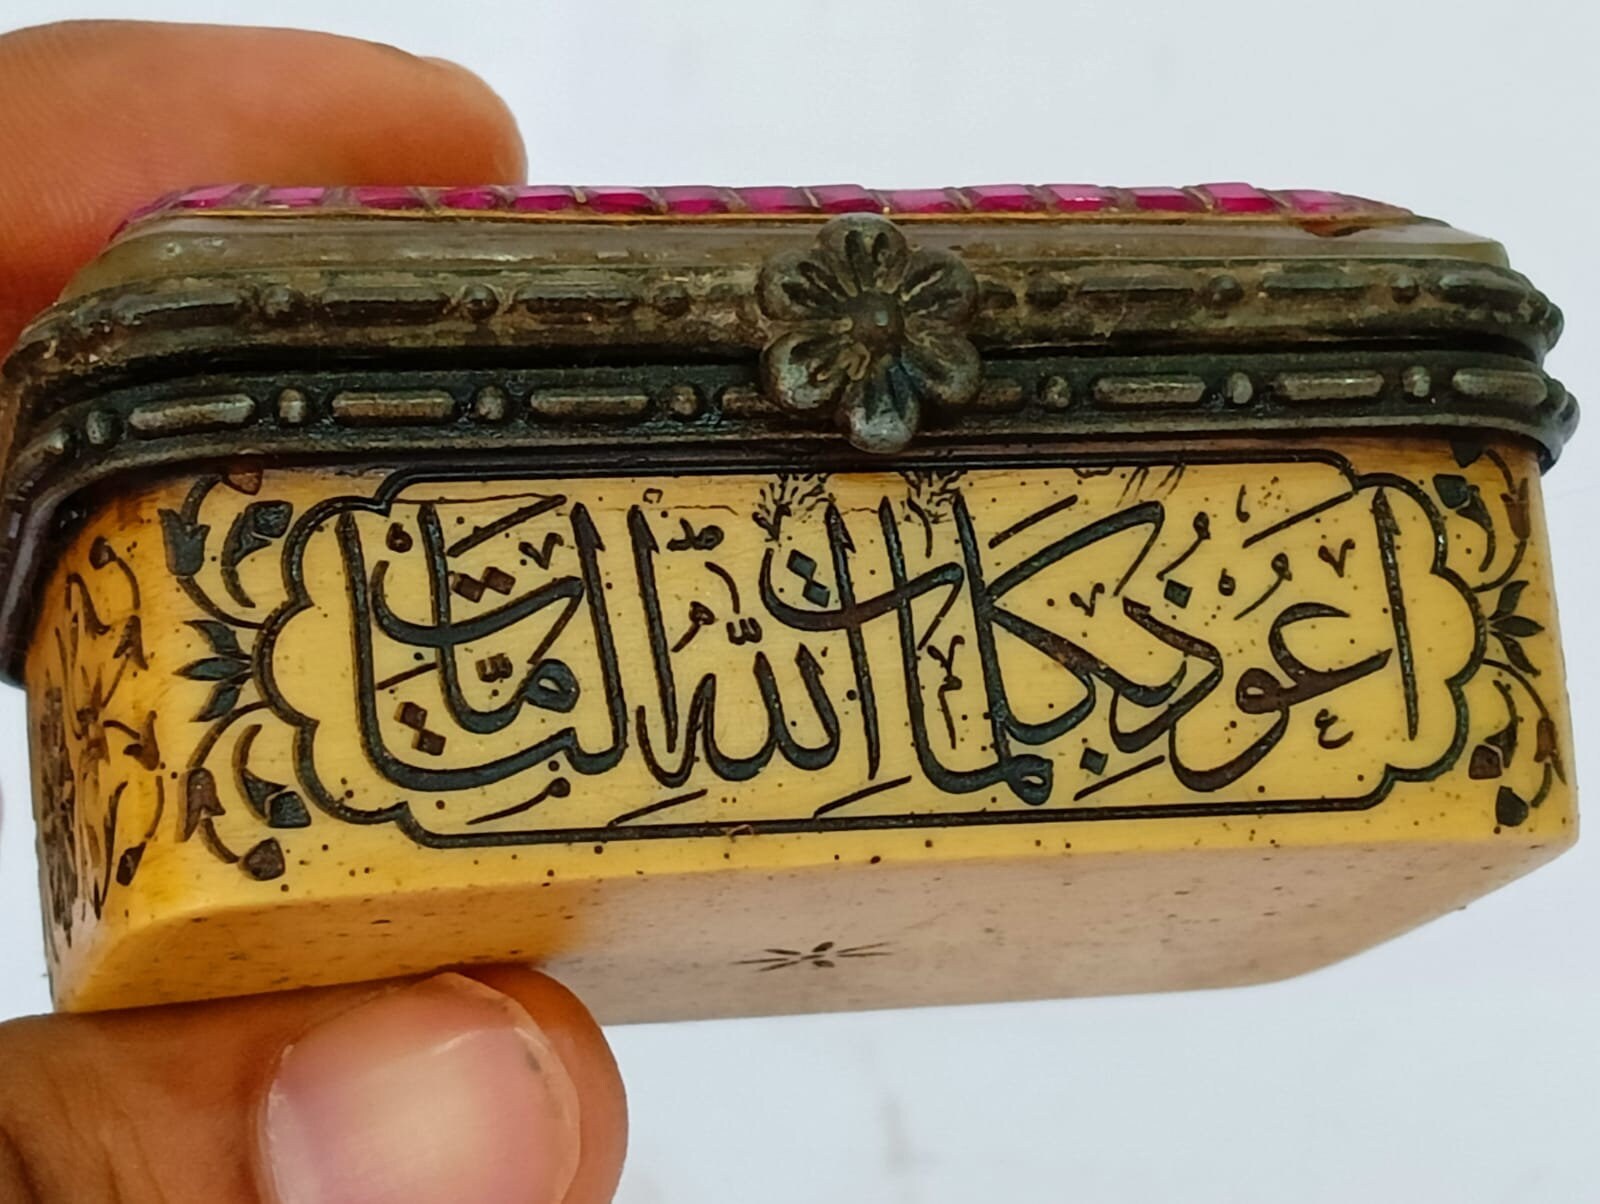 أَعُوذُ بِكَلِمَاتِ اللَّهِ التَّامَّاتِ